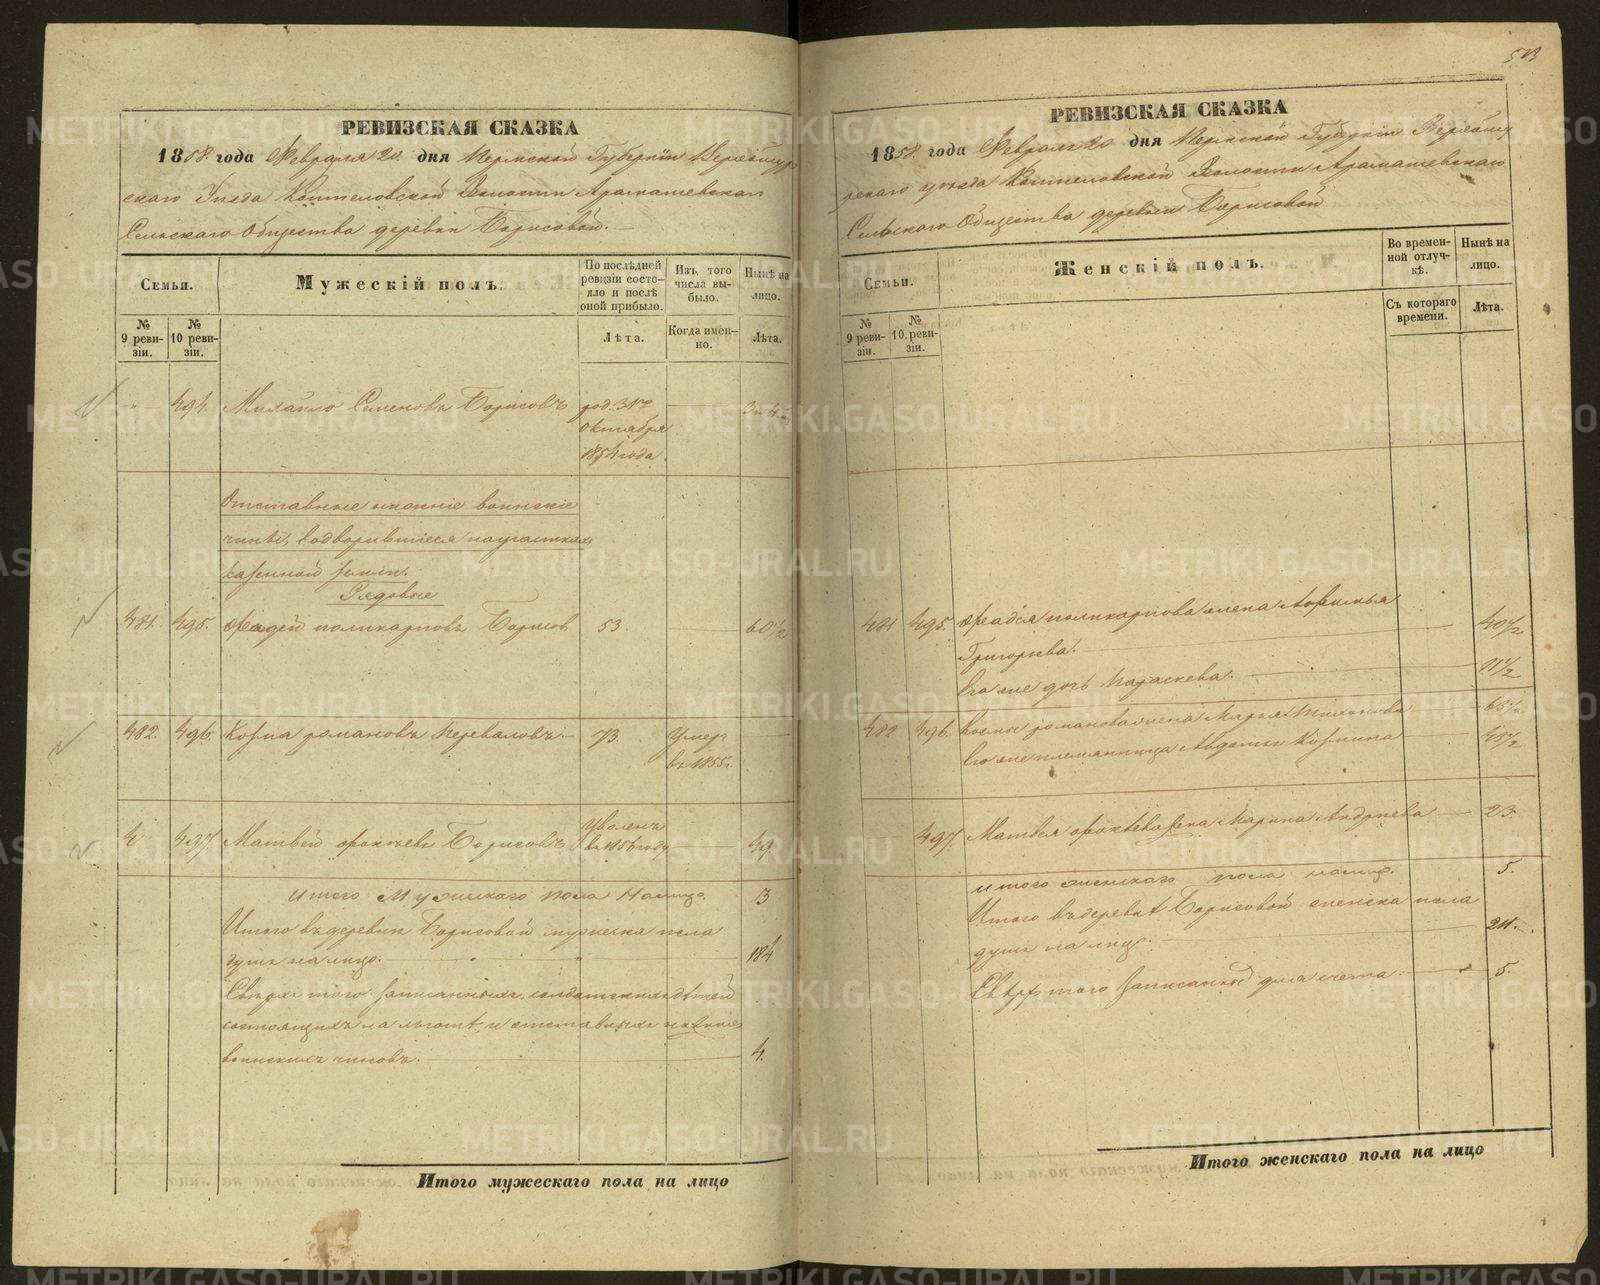 РЕВИЗСКАЯ СКАЗКА
1858. года Февраля 20. дня Пермской Губернiи Верхотур-
скаго Уѣзда Коптеловской Волости Арамашевскаго
Сельскаго Общества деревни Борисовой.
Семьи.
Мужескiй полъ.
По послѣдней ревизiи состояло и послѣ оной прибыло.
Изъ того числа выбыло.
Нынѣ на лицо.
№ 9 ревизiи.
№ 10 ревизiи.
Лѣта.
Когда именно.
Лѣта.
" 494. Михайло Семеновъ Борисовъ род. 31го
Октября
1854 года.
Отставные нижнiе воинскiе
чины, водворившiеся на участкахъ
казенной земли.
Рядовые
481. 495. Фадей Поликарповъ Борисов 53. 60 1/2
482. 496. Козма Романовъ Перевалов. 73. Умер
въ 1855 г.
497. Матвѣй Борисовъ Уволенъ
въ 1856 году 49
Итого Мужескаго пола На лицо. 13
Итого въ деревнѣ Борисовой мужеска пола
душъ на лицо. 184
Сверхъ того записанныхъ солдатскихъ дѣтей
состоящихъ на льготѣ и отставныхъ нижних
воинскихъ чиновъ. 4.
Итого мужескаго пола на лицо
РЕВИЗСКАЯ СКАЗКА
1858. года Февраля 20 дня Пермской Губернiи Верхоту-
рскаго уѣзда Коптеловской Волости Арамашевскаго
Сельскаго Общества деревни Борисовой
Семьи.
Женскiй полъ.
Во временной отлучкѣ.
Нынѣ на лицо.
№ 9 ревизiи.
№ 10 ревизiи.
Съ котораго времени.
Лѣта.
481 495. Фадея Поликарпова жена
Григорьева. 40 1/2
Его же дочь Параскева. 11 1/2
482 496. Козмы Романова жена Марья Тихонова
Его же племянница Авдотья Козмина
497. Матвея жена Марина Андреева 23.
Итого женскаго пола на лицо. 5.
Итого въ деревнѣ Борисовой женска пола
душъ на лицо. 211.
Сверх того записанных для счета 5.
Итого женскаго пола на лицо
METRIKI.GASO-URAL.RU